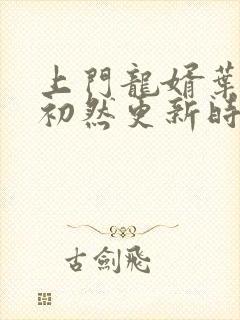 上門龍婿葉
初然更新時
古劍飛